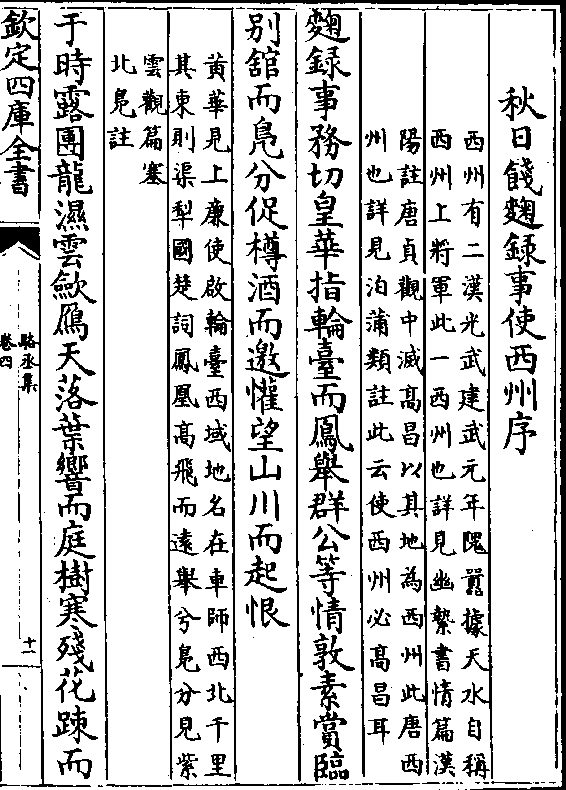 秋日餞麴録事使西州序
西州有二漢光武建武元年隗囂據天水自稱
西州上將軍此一西州也詳見幽縶書情篇漢
陽註唐貞觀中滅髙昌以其地為西州此唐西
州也詳見泊蒲類註此云使西州必髙昌耳
麴録事務切皇華指輪臺而鳳舉群公等情敦素賞臨
别舘而鳬分促樽酒而邀懽望山川而起恨
黄華見上㢘使啟輪臺西域地名在車師西北千里
其東則渠犁國楚詞鳳凰髙飛而逺舉兮鳬分見紫
雲觀篇塞
北鳬註
于時露團龍濕雲歛鴈天落葉響而庭樹寒殘花踈而
欽定四庫全書
駱丞集
卷四
十一